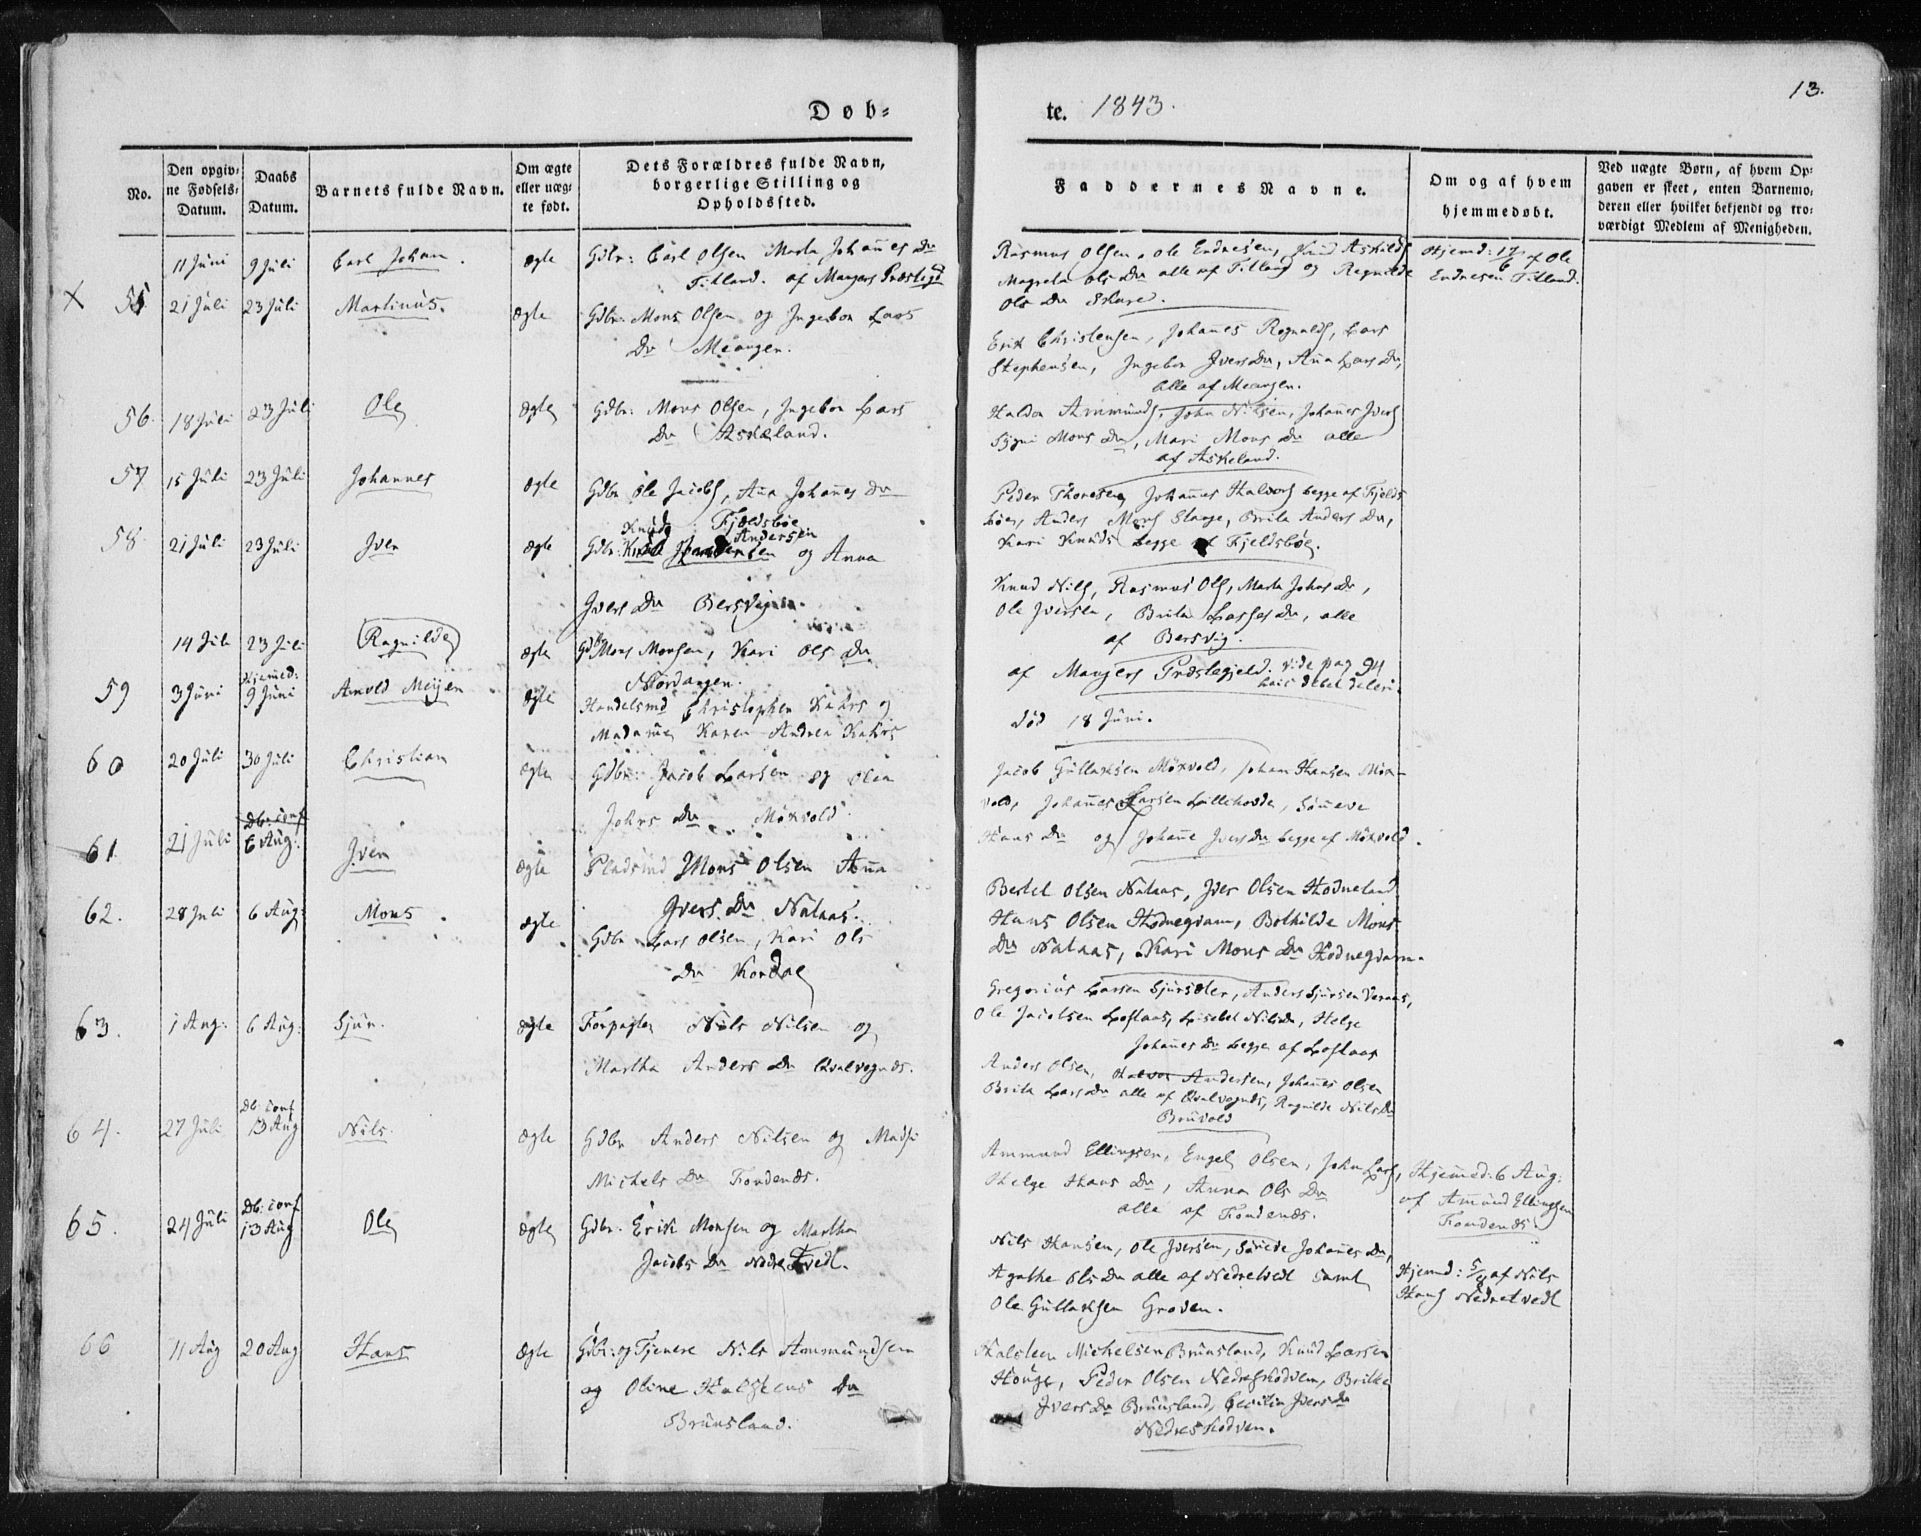 Døb-
te. 1843.
13.
No.
Den opgiv-
ne Fødsels-
Datum.
Daabs
Datum.
Barnets fulde Navn.
Om ægte
eller uæg-
te født.
Dets Forældres fulde Navn,
borgerlige Stilling og
Opholdssted.
Faddernes Navne.
Om og af hvem
hjemmedøbt.
Ved uægte Børn, af hvem Op-
gaven er skeet, enten Barnemo-
deren eller hvilket bekjendt og tro-
værdigt Medlem af Menigheden.
11 Juni 9 Juli Carl Johan. ægte Gdbr: Carl Olsen Marta Johañes Dr
Titland. af Mangers Præstegd
Rasmus Olsen, Ole Endresen, Knud Askilds
Magrela Ols Dr alle af Titland og Regnilde
Ols Dr Skare.
Hjemd: 17/6 af Ole
Endresen Titland.
X 55 21 Juli 23 Juli Martinus. ægte Gdbr: Mons Olsen og Ingebor Lars
Dr Meangen.
Erik Christensen, Johañes Rognalds, Lars
Stephensen, Ingebor Ivers Dr, Aña Lars Dr,
alle af Meangen.
56. 18 Juli 23 Juli Ole ægte Gdbr: Mons Olsen, Ingebor Lars
Dr Askeland.
Haldor Ammunds, John Nilsen, Johañes Ivers
Sygni Mons Dr, Mari Mons Dr alle
af Askeland.
57 15 Juli 23 Juli Johannes ægte Gdbr Ole Jacobs, Aña Johañes Dr
Fjeldsbøe
Peder Thoresen, Johañes Halvors begge af Fjelds
bøe, Anders Mons Stange, Brita Anders Dr,
Kari Knuds begge af Fjeldsbøe.
58. 21 Juli 23 Juli Iver ægte Gdbr: Knud Andersen og Anna
Ivers Dr Bersvigen.
Knud Nils, Rasmus Ols, Marta Johas Dr,
Ole Iversen, Brita Lasses Dr, alle
af Bersvig.
14 Juli 23 Juli Ragnilde ægte Gdb Mons Monsen, Kari Ols Dr
Nordangen.
af Mangers Præstegjeld. vide pag 94
59 3 Juni Hjemed: 9 Juni Arnold Meijer ægte Handelsmd Christopher Kahrs og
Madame Karen Andrea Kahrs
død 18 Juni.
60 20 Juli 30 Juli Christian ægte Gdbr: Jacob Larsen og Olea
Johns Dr Møxvold.
Jacob Gullaksen Møxvold, Johan Hansen Møx-
vold, Johañes Larsen Lillehovde,
Hans Dr og Johañe Ivers Dr begge af Møxvold.
61. 21 Juli Db: conf 6 Aug: Iver ægte Pladsmd Mons Olsen Aña
Ivers Dr Nataas.
Bertel Olsen Nataas, Iver Olsen Hodneland
Hans Olsen Hodnegvam, Bothilde Mons
Dr Nataas, Kari Mons Dr Hodnegvam.
62. 28 Juli 6 Aug: Mons ægte Gdbr Lars Olsen, Kari Ols
Dr Kordal
Gregorius Larsen Sjursæter, Anders Sjursen Veraas,
Ole Jacobsen Loftaas, Lisebet Nils Dr, Helge
Johañes Dr begge af Loftaas
63. 1 Aug: 6 Aug: Sjur. ægte Forpagter Nils Nilsen og
Martha Anders Dr Qvalvognæs.
Anders Olsen, Halvor Andersen, Johañes Olsen
Brita Lars Dr alle af Qvalvognæs, Ragnilde Nils Dr
Bruvold
64. 27 Juli Db: conf 13 Aug Nils. ægte Gdbr Anders Nilsen og Madsi
Michels Dr Fondenæs.
Ammund Ellingsen, Engel Olsen, John Lars,
Helge Hans Dr, Anna Ols Dr
alle af Fondenæs.
Hjemed: 6 Aug:
af Amund Ellingsen
Fondenæs
65. 24 Juli Db: conf 13 Aug Ole ægte Gdbr. Erik Monsen og Martha
Jacobs Dr Nedre Tvedt.
Nils Hansen, Ole Iversen, Johañes Dr,
Agathe Ols Dr alle af Nedretvedt samt
Ole Gullaksen Groven.
Hjemd: 5/8 af Nils
Hans Nedretvedt
66 11 Aug 20 Aug Hans ægte Gdbr: og Tjenere Nils Ammundsen
og Oline Halsteens Dr
Brunsland.
Halsteen Michelsen Brunsland, Knud Larsen
Houge, Peder Olsen Nedreskodven, Britte
Ivers Dr Brunsland, Cecilia Ivers Dr
Nedreskodven.